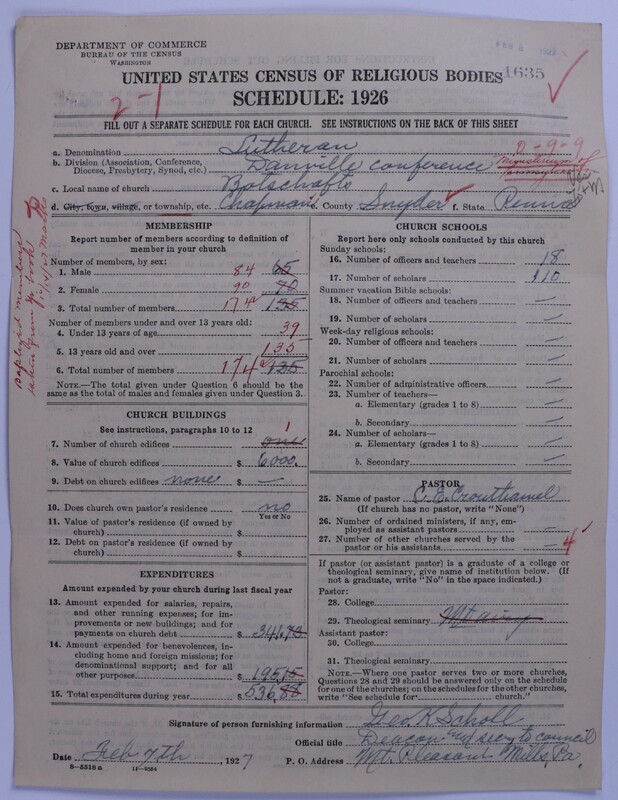 DEPARTMENT OF COMMERCE
BUREAU OF THE CENSUS
WASHINGTON
1635
UNITED STATES CENSUS OF RELIGIOUS BODIES
SCHEDULE: 1926
2-1
FILL OUT A SEPARATE SCHEDULE FOR EACH CHURCH. SEE INSTRUCTIONS ON THE BACK OF THIS SHEET
a. Denomination Lutheran 0-9-9
b. Division (Association, Conference, Diocese, Presbytery, Synod, etc.) Danville Conference Ministerium of Pennsylvania
c. Local name of church Botschafts
d. City, town, village, or township, etc. Chapman e. County Snyder f. State Penna
MEMBERSHIP
Report number of members according to definition of member in your church
Number of members, by sex:
1. Male 84 65
2. Female 90 70
3. Total number of members 174 135
Number of members under and over 13 years old:
4. Under 13 years of age 39
5. 13 years old and over 135
6. Total number of members 174 135
NOTE.—The total given under Question 6 should be the same as the total of males and females given under Question 3.
CHURCH BUILDINGS
See instructions, paragraphs 10 to 12
7. Number of church edifices 1 one
8. Value of church edifices $ 6000.
9. Debt on church edifices none $ —
10. Does church own pastor's residence no
Yes or No
11. Value of pastor's residence (if owned by church) $
12. Debt on pastor's residence (if owned by church) $
EXPENDITURES
Amount expended by your church during last fiscal year
13. Amount expended for salaries, repairs, and other running expenses; for improvements or new buildings; and for payments on church debt $ 341.73
14. Amount expended for benevolences, including home and foreign missions; for denominational support; and for all other purposes 195.15
15. Total expenditures during year $ 536.88
CHURCH SCHOOLS
Report here only schools conducted by this church
Sunday schools:
16. Number of officers and teachers 18
17. Number of scholars 110
Summer vacation Bible schools:
18. Number of officers and teachers —
19. Number of scholars —
Week-day religious schools:
20. Number of officers and teachers —
21. Number of scholars —
Parochial schools:
22. Number of administrative officers —
23. Number of teachers—
a. Elementary (grades 1 to 8) —
b. Secondary —
24. Number of scholars—
a. Elementary (grades 1 to 8) —
b. Secondary —
PASTOR
25. Name of pastor C. E. Crouthamel
(If church has no pastor, write "None")
26. Number of ordained ministers, if any, employed as assistant pastors —
27. Number of other churches served by the pastor or his assistants 4
If pastor (or assistant pastor) is a graduate of a college or theological seminary, give name of institution below. (If not a graduate, write "No" in the space indicated.)
Pastor:
28. College
29. Theological seminary Mt airy
Assistant pastor:
30. College
31. Theological seminary
NOTE.—Where one pastor serves two or more churches, Questions 28 and 29 should be answered only on the schedule for one of the churches; on the schedules for the other churches, write "See schedule for church."
Signature of person furnishing information Geo. K Scholl
Official title Deacon and secy to council
Date Feb 7th, 1927 P. O. Address Mt. Pleasant Mills, Pa.
8-5518 a 11-9254